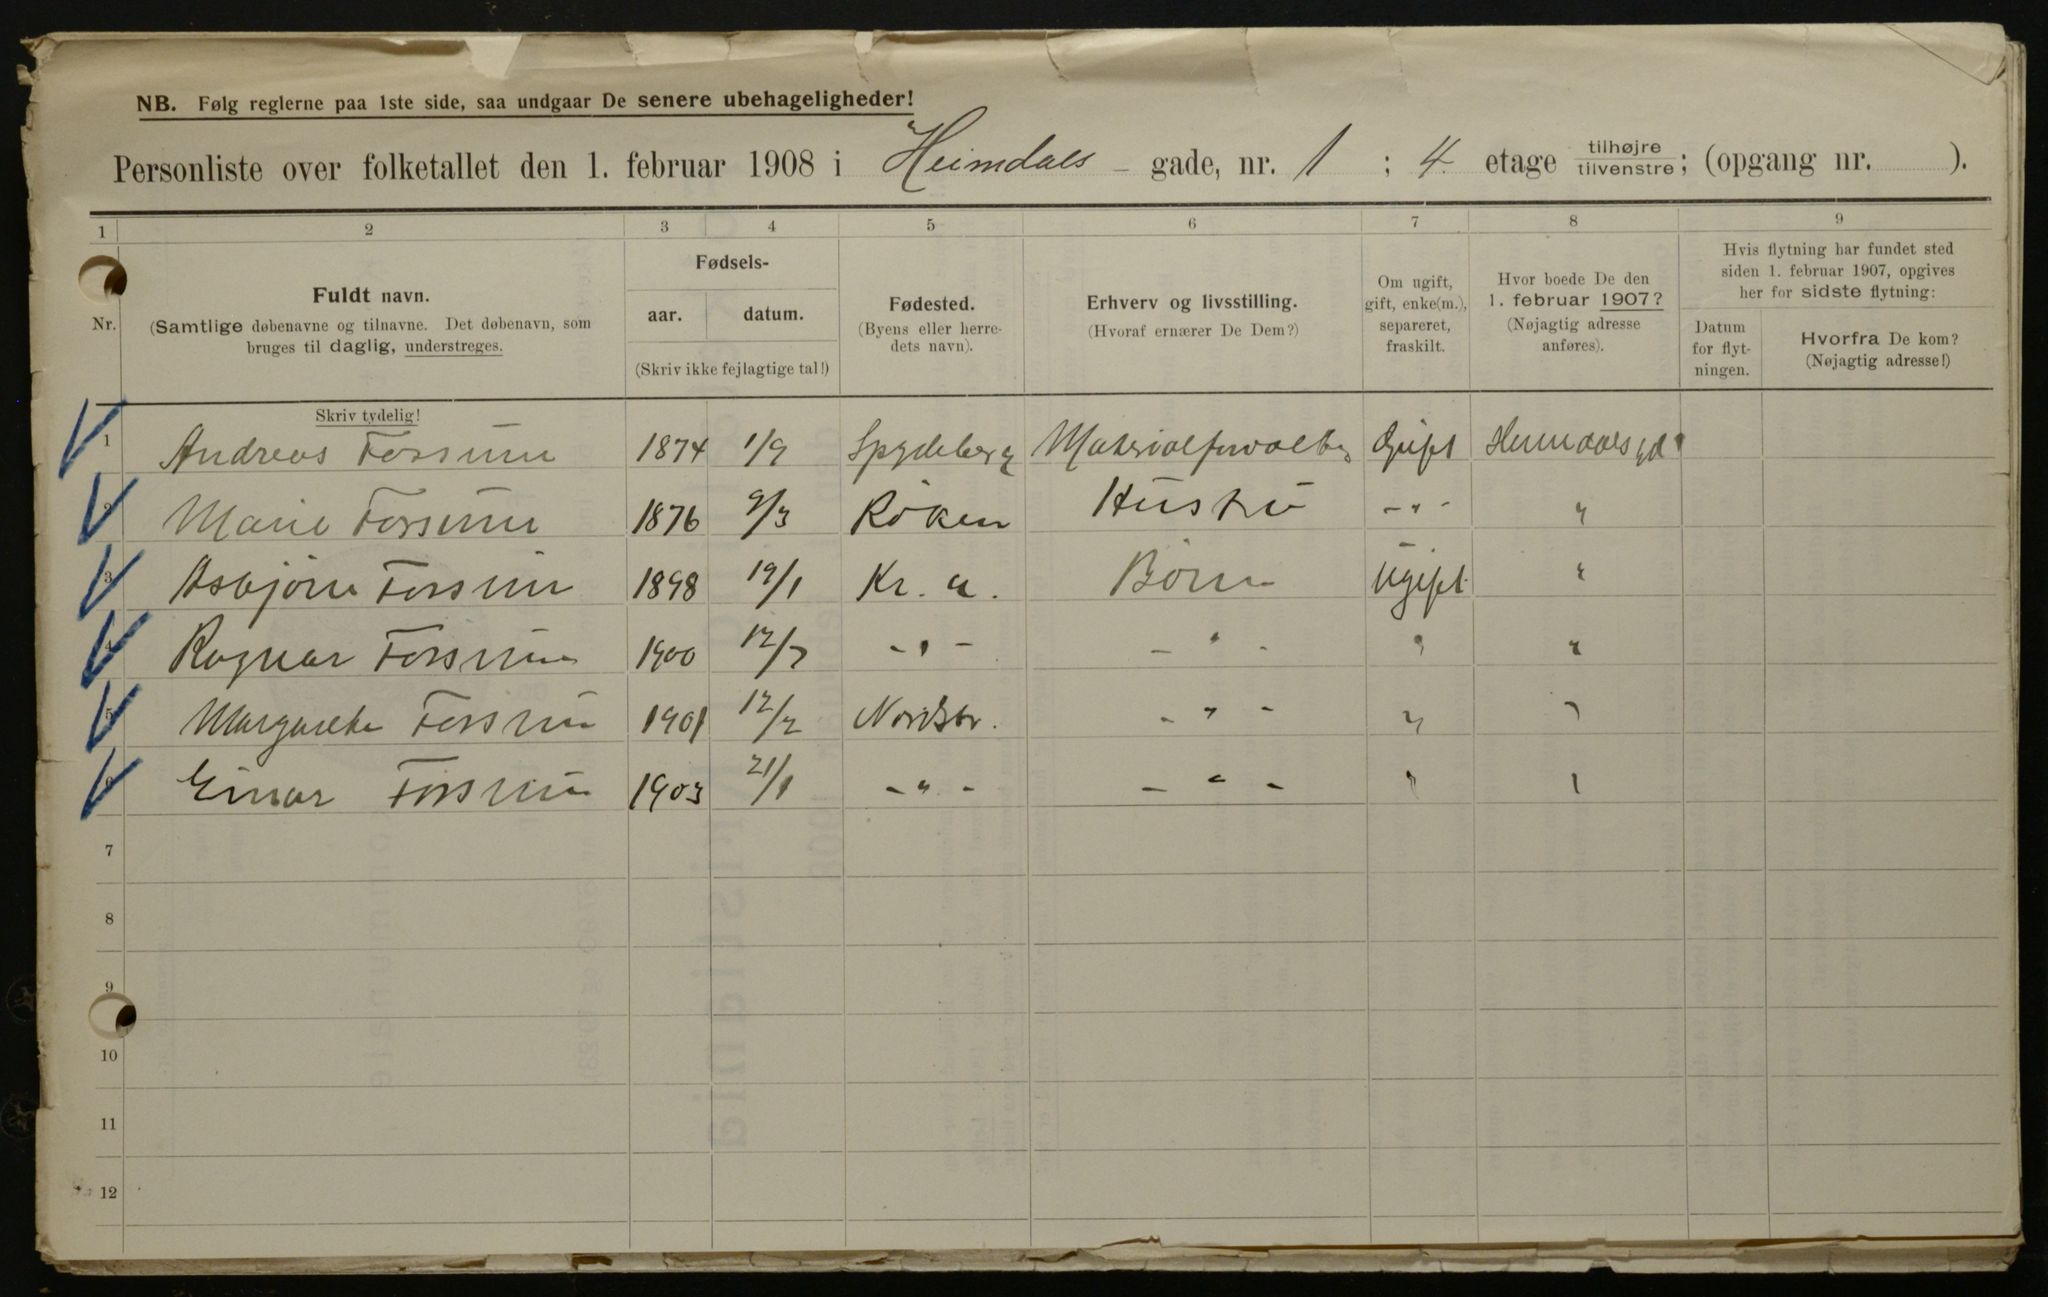 NB. Følg reglerne paa 1ste side, saa undgaar De senere ubehageligheder!
Personliste over folketallet den 1. februar 1908 i Heimdals - gade, nr. 1 ; 4. etage tilhøjre tilvenstre; (opgang nr. ).
1 2 3 4 5 6 7 8 9
Nr.
Fuldt navn.
(Samtlige døbenavne og tilnavne. Det døbenavn, som
bruges til daglig, understreges.
Skriv tydelig!
Fødsels-
aar. datum.
(Skriv ikke fejlagtige tal!)
Fødested.
(Byens eller herre-
dets navn).
Erhverv og livsstilling.
(Hvoraf ernærer De Dem?)
Om ugift,
gift, enke(m.),
separeret,
fraskilt.
Hvor boede De den
1. februar 1907?
(Nøjagtig adresse
anføres).
Hvis flytning har fundet sted
siden 1. februar 1907, opgives
her for sidste flytning:
Datum
for flyt-
ningen.
Hvorfra De kom?
(Nøjagtig adresse!)
1 Andreas Forsum 1874 1/9 Spydeberg Materialforvalter Gift Heimdalsgd 1
2 Marie Forsum 1876 9/3 Røken Hustru - " - "
3 Asbjørn Forsum 1898 19/1 Kr. a. Børn Ugift "
4 Ragnar Forsum 1900 12/7 - " - - " - " "
5 Margarethe Forsum 1901 12/2 Nordstr. - " - " "
6 Einar Forsum 1903 21/1 - " - - " - " "
7
8
9
10
11
12